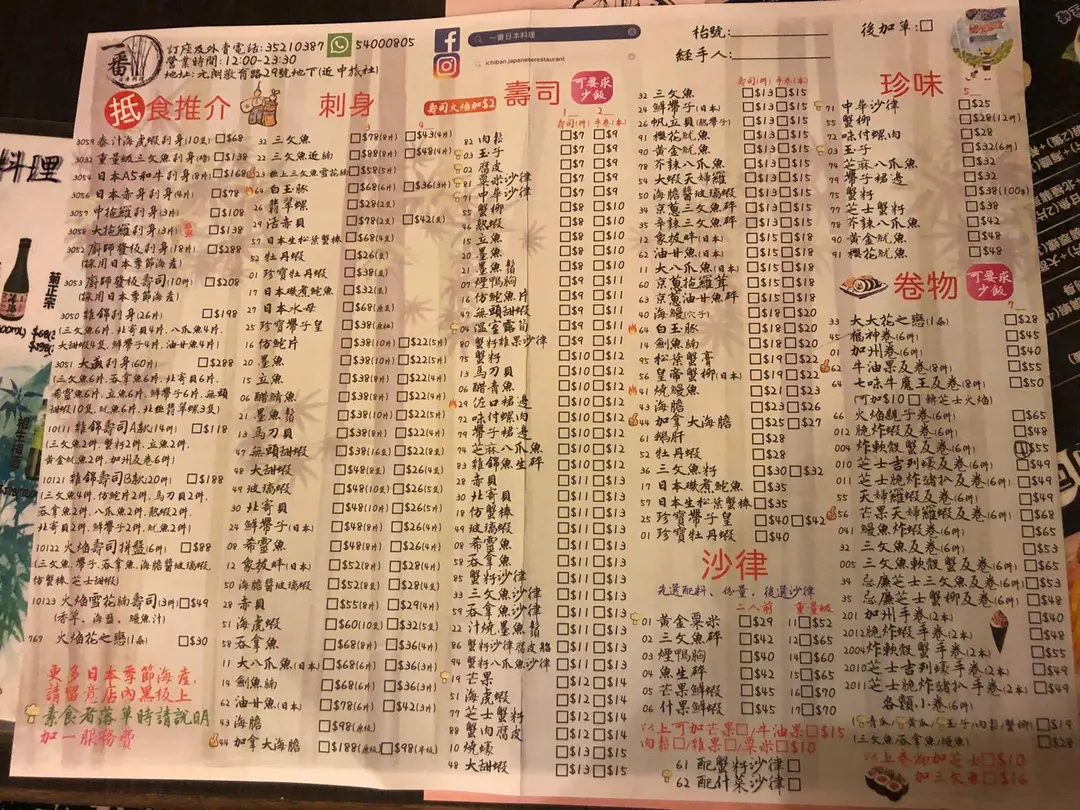 一番
訂座及外賣電話:35210387 54000805
營業時間:12:00-23:30
地址:元朗教育路29號地下(近中旅社)
一番日本料理
ichiban.japaneserestaurant
枱號:
經手人:
後加單:□
抵食推介
3059 泰汁海虎蝦刺身(10隻) □$68
3032 重量級三文魚刺身 □$138
3054 日本A5和牛刺身(8片) □$168
3056 日本赤身刺身(4片) □$78
3057 中拖羅刺身(3片) □$108
3058 大拖羅刺身(3片) □$138
3052 廚師發板刺身(18片) □$288
(採用日本季節海產)
3053 廚師發板壽司(10件) □$208
(採用日本季節海產)
3050 雜錦刺身(26片) □$198
(三文魚6片,北寄貝4片,八爪魚4片,
大甜蝦4隻,鮮帶子4片,油甘魚4片)
3051 大盛刺身(60片) □$288
(三文魚6片,吞拿魚6片,北寄貝6片,
希靈魚6片,立魚6片,鮮帶子6片,無頭
甜蝦10隻,魷魚6片,北極翡翠螺3隻)
10111 雜錦壽司A款(14件) □$118
(三文魚2件,蟹籽2件,立魚2件,
黃金魷魚2件,加州及卷6件)
10121 雜錦壽司B款(20件) □$188
(三文魚4件,仿鮀片2件,馬刀貝2件,
吞拿魚2件,八爪魚2件,熟蝦2件,
北寄貝2件,鮮帶子2件,魷魚2件)
10122 火焰壽司拼盤(6件) □$88
(三文魚,帶子,吞拿魚,海膽醬玻璃蝦,
仿蟹棒,芝士甜蝦)
10123 火焰雪花腩壽司(3件) □$49
(香草、海鹽、鰻魚汁)
767 火焰花之戀(1客) □$30
更多日本季節海產,
請留意店內黑板上
素食者落單時請說明
加一服務費
刺身
32 三文魚 □$78(8片) □$43(4片)
22 三文魚近腩 □$88(8片) □$48(4片)
23 極上三文魚雪花腩 □$58(5片)
64 白玉豚 □$68(6片) □$36(3片)
26 翡翠螺 □$28(2隻)
29 活赤貝 □$78(2隻) □$42(1隻)
57 日本生松葉蟹棒 □$68(4隻)
52 牡丹蝦 □$26(1隻)
01 珍寶牡丹蝦 □$38(1隻)
17 日本磯煮鮑魚 □$32(1隻)
27 日本水母 □$68(原板)
25 珍寶帶子皇 □$38(1粒)
16 仿鮀片 □$38(10片) □$22(5片)
20 墨魚 □$38(10片) □$22(5片)
15 立魚 □$38(8片) □$22(4片)
06 醋鯖魚 □$38(8片) □$22(4片)
21 墨魚鬚 □$38(10片) □$22(5片)
13 馬刀貝 □$38(8片) □$22(4片)
47 無頭甜蝦 □$38(16隻) □$22(8隻)
48 大甜蝦 □$48(8隻) □$26(4隻)
49 玻璃蝦 □$48(10隻) □$26(5隻)
30 北寄貝 □$48(10片) □$26(5片)
24 鮮帶子(日本) □$48(8片) □$26(4片)
08 希靈魚 □$48(8片) □$26(4片)
12 象拔蚌(日本) □$52(8片) □$28(4片)
50 海膽醬玻璃蝦 □$52(8隻) □$28(4隻)
28 赤貝 □$55(8片) □$29(4片)
51 海虎蝦 □$60(10隻) □$32(5隻)
58 吞拿魚 □$68(8片) □$36(4片)
11 大八爪魚(日本) □$68(6片) □$36(3片)
14 劍魚腩 □$68(6片) □$36(3片)
62 油甘魚(日本) □$78(6片) □$42(3片)
43 海膽 □$98(原板)
44 加拿大海膽 □$188(原板) □$98(半板)
壽司
可要求少飯
壽司火焰加$2
壽司(件) 手卷(本)
82 肉鬆 □$7 □$9
03 玉子 □$7 □$9
02 腐皮 □$7 □$9
81 粟米沙律 □$7 □$9
71 中華沙律 □$7 □$9
55 蟹柳 □$8 □$10
46 熟蝦 □$8 □$10
15 立魚 □$8 □$10
20 墨魚 □$8 □$10
21 墨魚鬚 □$8 □$10
07 煙鴨胸 □$9 □$11
16 仿鮀魚片 □$9 □$11
47 無頭甜蝦 □$9 □$11
04 溫室露筍 □$9 □$11
80 蟹籽雜果沙律 □$9 □$11
75 蟹籽 □$10 □$12
13 馬刀貝 □$10 □$12
06 醋青魚 □$10 □$12
29 佐口裙邊 □$10 □$12
72 味付螺肉 □$10 □$12
79 帶子裙邊 □$10 □$12
74 芝麻八爪魚 □$10 □$12
83 雜錦魚生碎 □$10 □$12
28 赤貝 □$11 □$13
30 北寄貝 □$11 □$13
18 仿蟹棒 □$11 □$13
49 玻璃蝦 □$11 □$13
08 希靈魚 □$11 □$13
58 吞拿魚 □$11 □$13
85 蟹籽沙律 □$11 □$13
33 三文魚沙律 □$11 □$13
59 吞拿魚沙律 □$11 □$13
22 汁燒墨魚鬚 □$11 □$13
86 蟹籽沙律腐皮 □$11 □$13
94 蟹籽八爪魚沙律 □$11 □$13
19 芒果 □$12 □$14
51 海虎蝦 □$12 □$14
77 芝士蟹籽 □$12 □$14
88 蟹肉腐皮 □$12 □$14
10 燒蠔 □$13 □$15
48 大甜蝦 □$13 □$15
壽司(件) 手卷(本)
32 三文魚 □$13 □$15
24 鮮帶子(日本) □$13 □$15
26 帆立貝(熟帶子) □$13 □$15
91 櫻花魷魚 □$13 □$15
90 黃金魷魚 □$13 □$15
78 芥辣八爪魚 □$13 □$15
54 大蝦天婦羅 □$13 □$15
50 海膽醬玻璃蝦 □$13 □$15
34 京蔥三文魚碎 □$13 □$15
35 辛辣三文魚碎 □$13 □$15
12 象拔蚌(日本) □$15 □$18
62 油甘魚(日本) □$15 □$18
11 大八爪魚(日本) □$15 □$18
60 京蔥拖羅茸 □$15 □$18
63 京蔥油甘魚碎 □$15 □$18
40 海鰻(穴子) □$18 □$20
64 白玉豚 □$18 □$20
14 劍魚腩 □$18 □$20
95 松葉蟹膏 □$19 □$22
56 皇帝蟹柳(日本) □$19 □$22
41 燒鰻魚 □$21 □$23
43 海膽 □$23 □$26
44 加拿大海膽 □$25 □$27
61 鵝肝 □$28
52 牡丹蝦 □$28
36 三文魚籽 □$30 □$32
17 日本磯煮鮑魚 □$35
57 日本生松葉蟹棒 □$35
25 珍寶帶子皇 □$40 □$42
01 珍寶牡丹蝦 □$40
沙律
先選配料、份量,後選沙律
二人前 重量級
01 黃金粟米 □$29 11 □$52
02 三文魚碎 □$40 12 □$58
03 煙鴨胸 □$40 14 □$60
04 魚生碎 □$42 15 □$65
05 芒果鮮蝦 □$45 16 □$70
06 什果鮮蝦 □$45 17 □$70
以上可加芒果□/牛油果□$15
肉鬆□/雜果□/粟米□$10
61 配蟹籽沙律□
62 配什菜沙律□
珍味
71 中華沙律 □$25
55 蟹柳 □$28(12件)
72 味付螺肉 □$28
03 玉子 □$32(6件)
74 芝麻八爪魚 □$32
79 帶子裙邊 □$32
75 蟹籽 □$38(100g)
77 芝士蟹籽 □$38
78 芥辣八爪魚 □$42
90 黃金魷魚 □$48
91 櫻花魷魚 □$48
卷物
可要求少飯
33 大大花之戀(1客) □$28
45 福神卷(6件) □$45
01 加州卷(6件) □$40
62 牛油果及卷(8件) □$55
64 七味牛魔王及卷(8件) □$50
(可加$10□轉芝士火焰)
66 火焰親子卷(6件) □$65
012 脆炸蝦及卷(6件) □$48
004 炸軟殼蟹及卷(6件) □$55
010 芝士吉列蠔及卷(6件) □$49
011 芝士脆炸豬扒及卷(6件) □$49
55 天婦羅蝦及卷(6件) □$49
56 芒果天婦羅蝦及卷(6件) □$68
041 鰻魚炸蝦卷(6件) □$65
32 三文魚及卷(6件) □$53
005 三文魚軟殼蟹及卷(6件) □$65
34 忌廉芝士三文魚及卷(6件) □$53
35 忌廉芝士蟹柳及卷(6件) □$48
201 加州手卷(2本) □$40
2012 脆炸蝦手卷(2本) □$48
2004 炸軟殼蟹手卷(2本) □$55
2010 芝士吉列蠔手卷(2本) □$49
2011 芝士脆炸豬扒手卷(2本) □$49
各類小卷(6件)
(□青瓜/□黃瓜/□玉子/肉鬆/蟹柳) □$19
(三文魚吞拿魚/鰻魚) □$28
以上卷物加芝士□$10
加三文魚□$16
料理
菊正宗